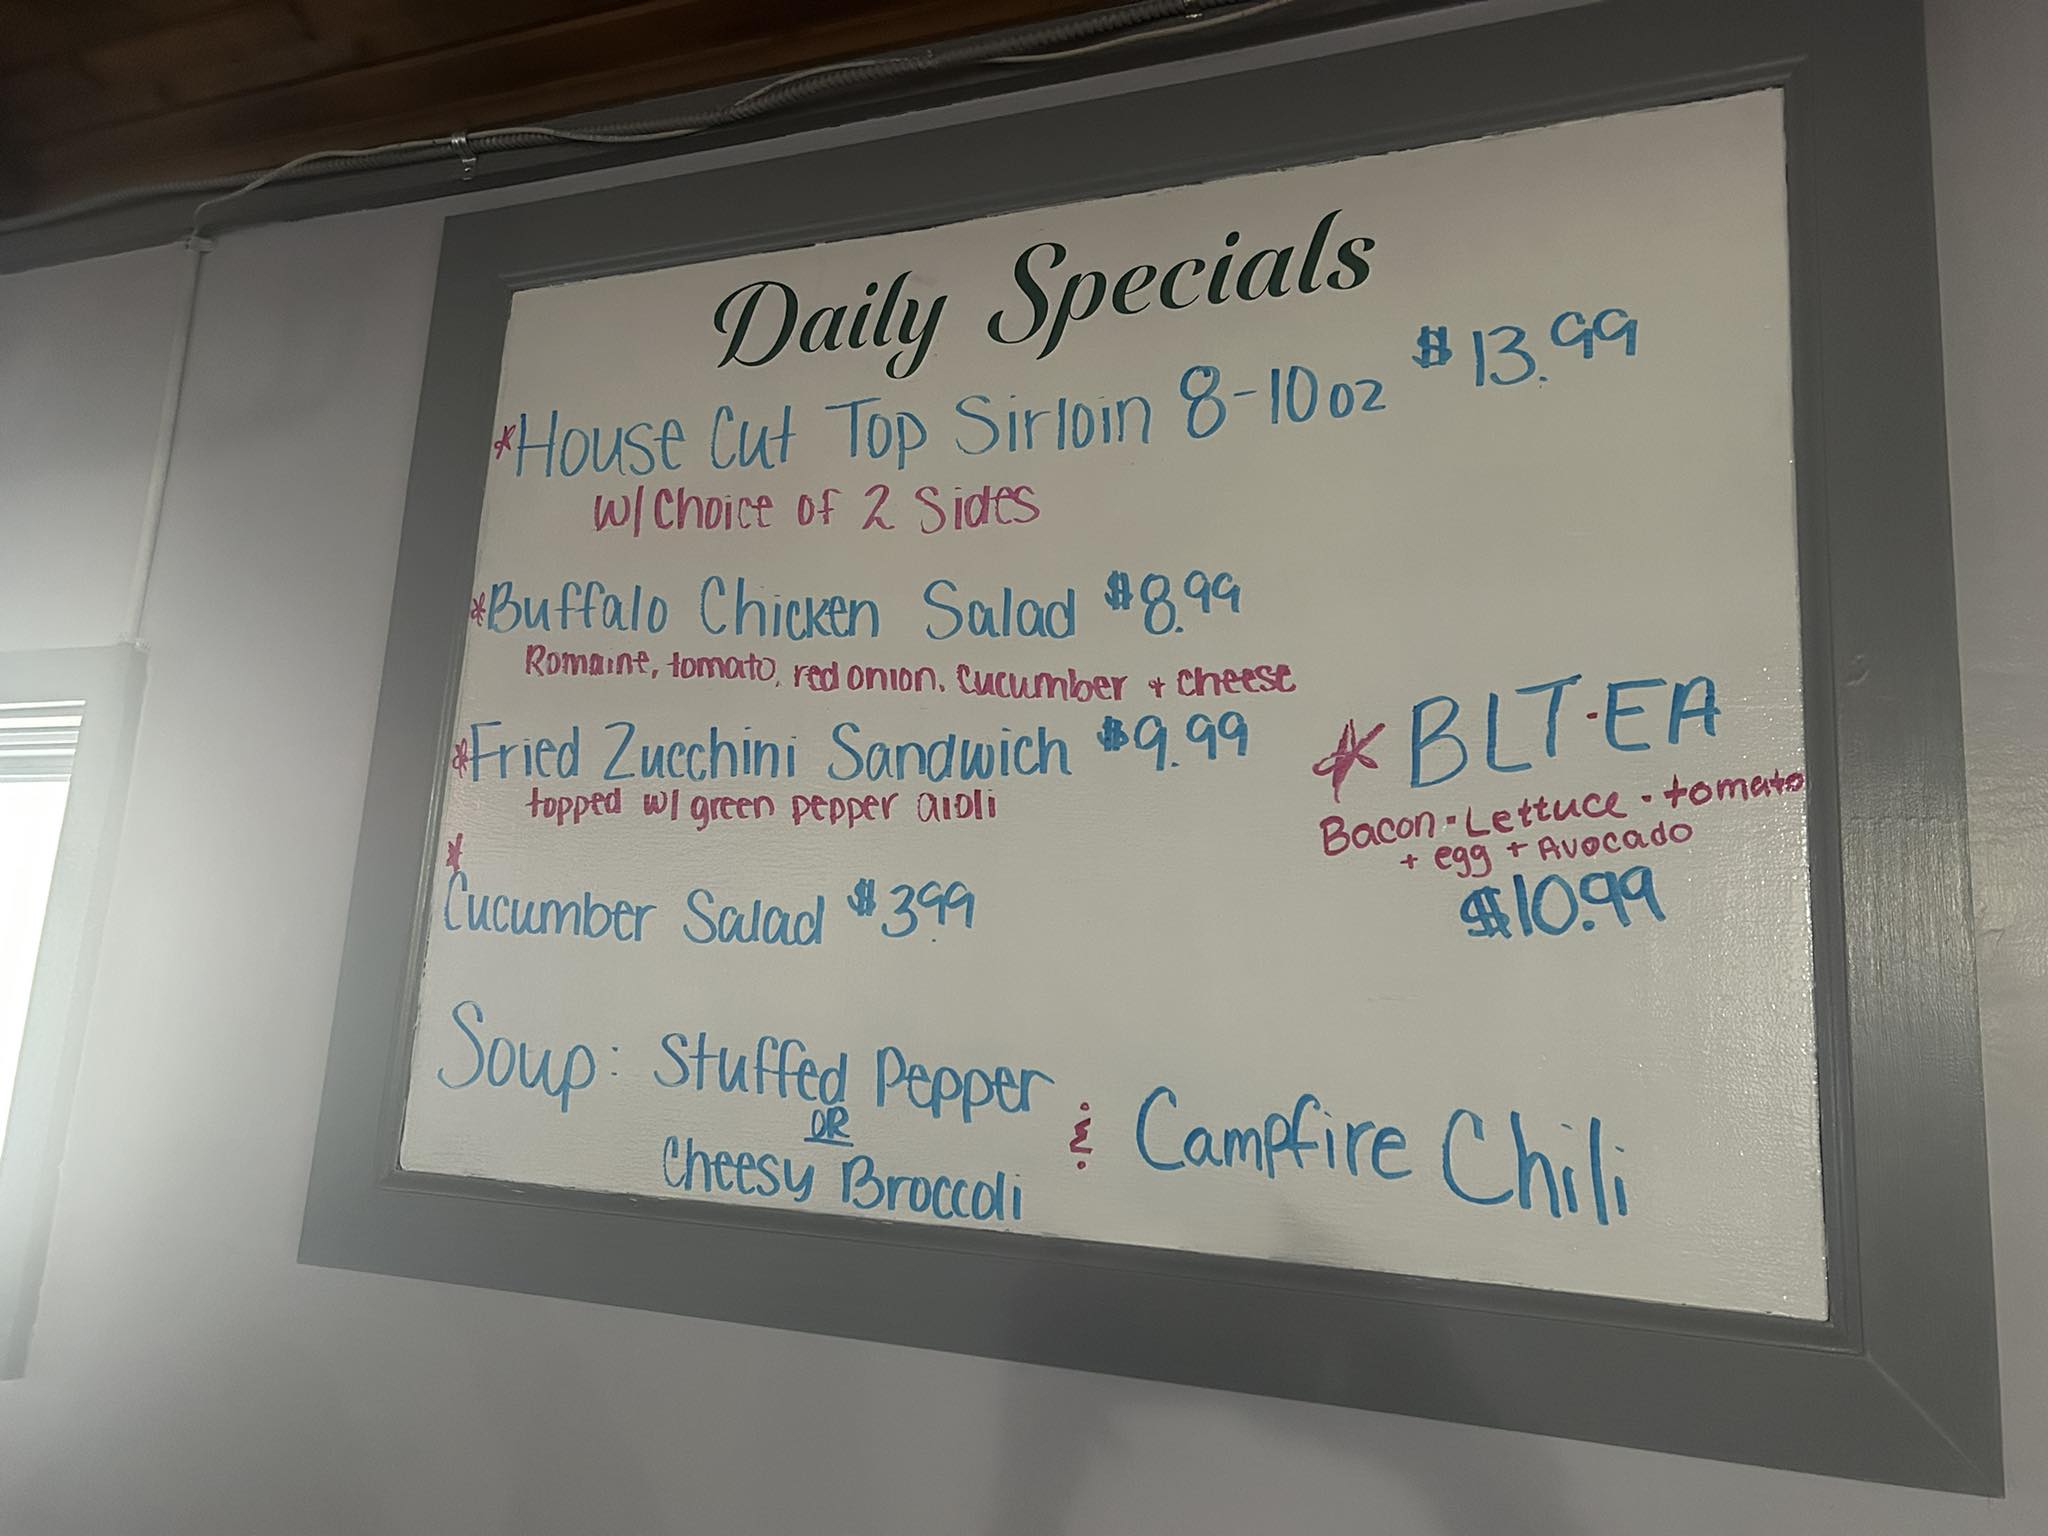 Daily Specials
*House Cut Top Sirloin 8-10oz $13.99
w/ Choice of 2 Sides
*Buffalo Chicken Salad $8.99
Romaine, tomato, red onion, cucumber + cheese
*Fried Zucchini Sandwich $9.99
topped w/ green pepper aioli
*
Cucumber Salad $3.99
* BLT·EA
Bacon · Lettuce · tomato
+ egg + Avocado
$10.99
Soup: Stuffed Pepper
OR
Cheesy Broccoli
& Campfire Chili